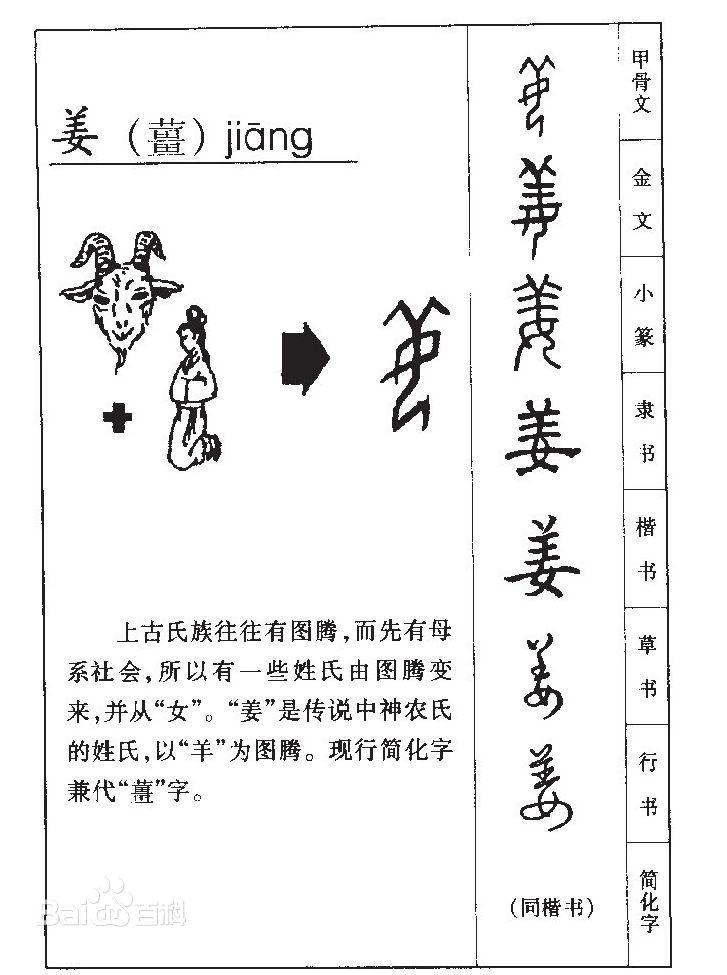 姜（薑）jiāng
上古氏族往往有图腾，而先有母
系社会，所以有一些姓氏由图腾变
来，并从“女”。“姜”是传说中神农氏
的姓氏，以“羊”为图腾。现行简化字
兼代“薑”字。
姜
姜
姜
姜
姜
姜
姜
（同楷书）
甲骨文
金文
小篆
隶书
楷书
草书
行书
简化字
Bai百科